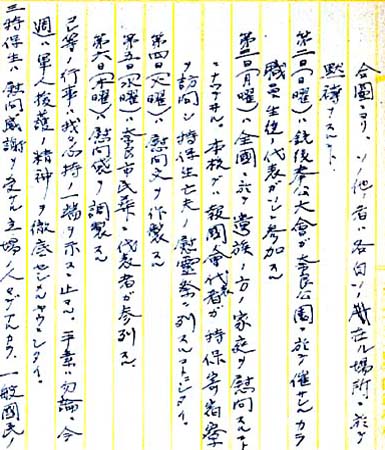 合図ニヨリ、ソノ他ノ者ハ各自ソノ現在ノ場所ニ於テ
黙祷ヲスルコト
第二日(日曜)ハ銃後奉公大会ガ奈良公園ニ於テ催サレルカラ
職員生徒ノ代表ガコレニ参加スル
第三日(月曜)ハ全国ニ於テ遺族ノ方ノ家庭ヲ慰問スルコトニ
ナツテヰル。本校デハ報国会代表者ガ特保寄宿寮
ヲ訪問シ特保生亡夫ノ慰霊祭ニ列スルコトニシタイ。
第四日(火曜)ハ慰問文ヲ作製スル
第五日(水曜)ハ奈良市民葬ニ代表者ガ参列スル
第六日(木曜)ハ慰問袋ヲ調製スル
己等ノ行事ハ我々ノ心持ノ一端ヲ示スニ止マル。平素ハ勿論、今
週ハ軍人援護ノ精神ヲ徹底セシメルヤウニシタイ。
三特保生ハ慰問感謝ヲ受ケル立場ノ人々デアルカラ、一般国民ノ